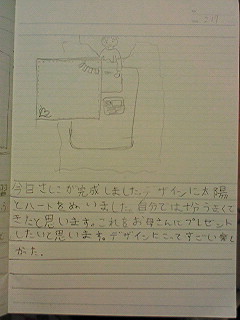 今日さしこが完成しました。デザインに太陽
とハートをぬいました。自分では十分うまくで
きたと思います。これをお母さんにプレゼント
したいと思います。デザインにこってすごい楽し
かった。